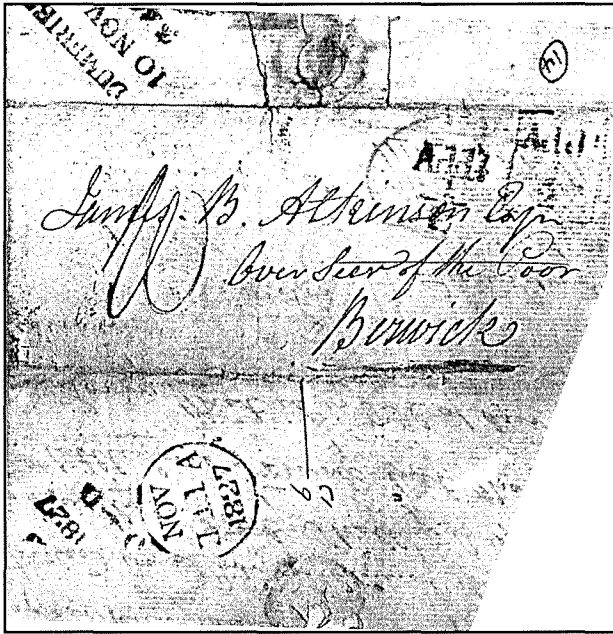 DUMFRIES
10 NOV
14
Addl
Addl
James. B. Atkinson Esqr
Over Seer of the Poor
Berwick
NOV
A
1827
1827